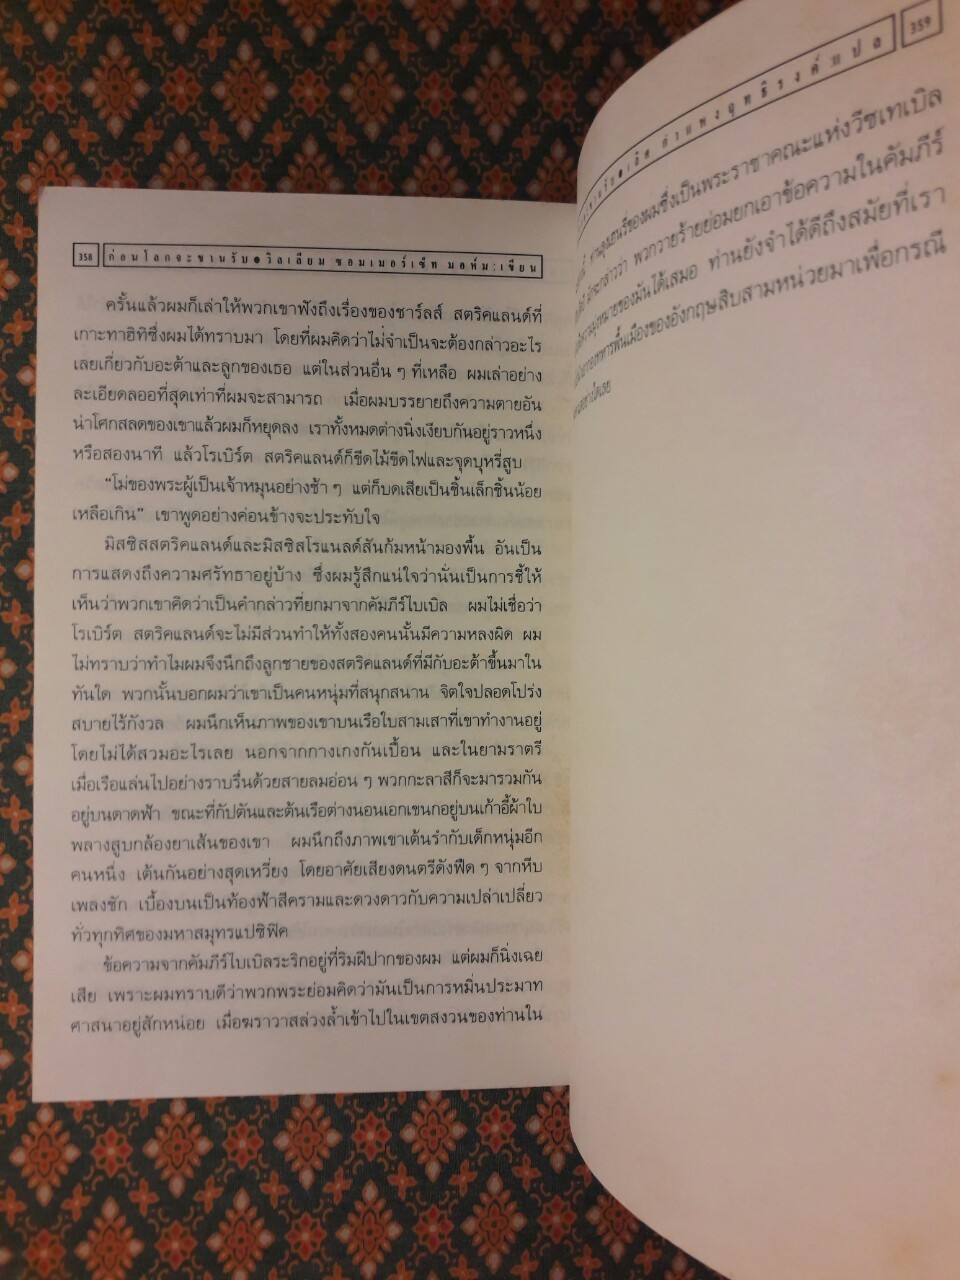 358 ก่อนโลกจะขานรับ●วิลเลียม ซอมเมอร์เซ็ท มอห์ม:เขียน
ครั้นแล้วผมก็เล่าให้พวกเขาฟังถึงเรื่องของชาร์ลส์ สตริคแลนด์ที่
เกาะทาฮิทิซึ่งผมได้ทราบมา โดยที่ผมคิดว่าไม่จำเป็นจะต้องกล่าวอะไร
เลยเกี่ยวกับอะต้าและลูกของเธอ แต่ในส่วนอื่น ๆ ที่เหลือ ผมเล่าอย่าง
ละเอียดลออที่สุดเท่าที่ผมจะสามารถ เมื่อผมบรรยายถึงความตายอัน
น่าโศกสลดของเขาแล้วผมก็หยุดลง เราทั้งหมดต่างนิ่งเงียบกันอยู่ราวหนึ่ง
หรือสองนาที แล้วโรเบิร์ต สตริคแลนด์ก็ขีดไม้ขีดไฟและจุดบุหรี่สูบ
“โม่ของพระผู้เป็นเจ้าหมุนอย่างช้า ๆ แต่ก็บดเสียเป็นชิ้นเล็กชิ้นน้อย
เหลือเกิน” เขาพูดอย่างค่อนข้างจะประทับใจ
มิสซิสสตริคแลนด์และมิสซิสโรแนลด์สันก้มหน้ามองพื้น อันเป็น
การแสดงถึงความศรัทธาอยู่บ้าง ซึ่งผมรู้สึกแน่ใจว่านั่นเป็นการชี้ให้
เห็นว่าพวกเขาคิดว่าเป็นคำกล่าวที่ยกมาจากคัมภีร์ไบเบิล ผมไม่เชื่อว่า
โรเบิร์ต สตริคแลนด์จะไม่มีส่วนทำให้ทั้งสองคนนั้นมีความหลงผิด ผม
ไม่ทราบว่าทำไมผมจึงนึกถึงลูกชายของสตริคแลนด์ที่มีกับอะต้าขึ้นมาใน
ทันใด พวกนั้นบอกผมว่าเขาเป็นคนหนุ่มที่สนุกสนาน จิตใจปลอดโปร่ง
สบายไร้กังวล ผมนึกเห็นภาพของเขาบนเรือใบสามเสาที่เขาทำงานอยู่
โดยไม่ได้สวมอะไรเลย นอกจากกางเกงกันเปื้อน และในยามราตรี
เมื่อเรือแล่นไปอย่างราบรื่นด้วยสายลมอ่อน ๆ พวกกะลาสีก็จะมารวมกัน
อยู่บนดาดฟ้า ขณะที่กัปตันและต้นเรือต่างนอนเอกเขนกอยู่บนเก้าอี้ผ้าใบ
พลางสูบกล้องยาเส้นของเขา ผมนึกถึงภาพเขาเต้นรำกับเด็กหนุ่มอีก
คนหนึ่ง เต้นกันอย่างสุดเหวี่ยง โดยอาศัยเสียงดนตรีดังฟืด ๆ จากหีบ
เพลงชัก เบื้องบนเป็นท้องฟ้าสีครามและดวงดาวกับความเปล่าเปลี่ยว
ทั่วทุกทิศของมหาสมุทรแปซิฟิค
ข้อความจากคัมภีร์ไบเบิลระริกอยู่ที่ริมฝีปากของผม แต่ผมก็นิ่งเฉย
เสีย เพราะผมทราบดีว่าพวกพระย่อมคิดว่ามันเป็นการหมิ่นประมาท
ศาสนาอยู่สักหน่อย เมื่อฆราวาสล่วงล้ำเข้าไปในเขตสงวนของท่านใน
แปล 359
ของผมซึ่งเป็นพระราชาคณะแห่งวีซเทเบิล
มักจะกล่าวว่า พวกวายร้ายย่อมยกเอาข้อความในคัมภีร์
ของมันได้เสมอ ท่านยังจำได้ดีถึงสมัยที่เรา
พื้นเมืองของอังกฤษสิบสามหน่วยมาเพื่อกรณี